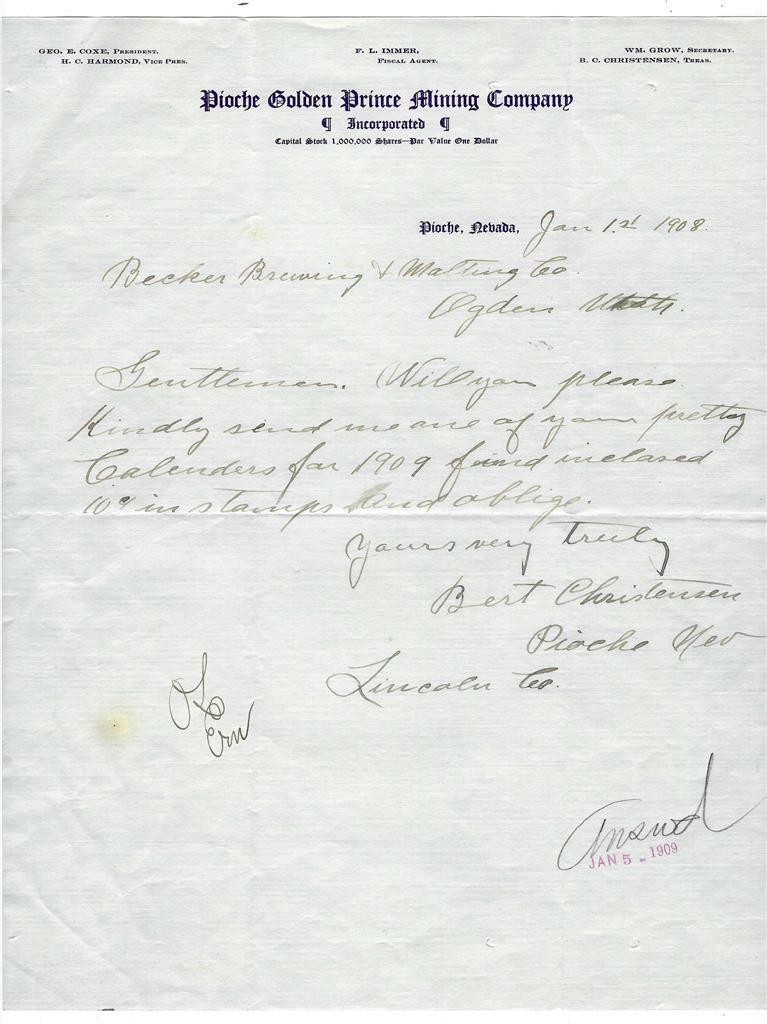 GEO. E. COXE, PRESIDENT.
H. C. HARMOND, VICE PRES.
F. L. IMMER,
FISCAL AGENT.
WM. GROW, SECRETARY.
B. C. CHRISTENSEN, TREAS.
Pioche Golden Prince Mining Company
¶ Incorporated ¶
Capital Stock 1,000,000 Shares—Par Value One Dollar
Pioche, Nevada, Jan 1st 1908.
Becker Brewing & Malting Co.
Ogden Utah.
Gentlemen. Will you please
Kindly send me one of your pretty
Calenders for 1909 find inclosed
10¢ in stamps and oblige.
Yours very truly
Bert Christensen
Pioche Nev
Lincoln Co.
Answd
JAN 5 - 1909